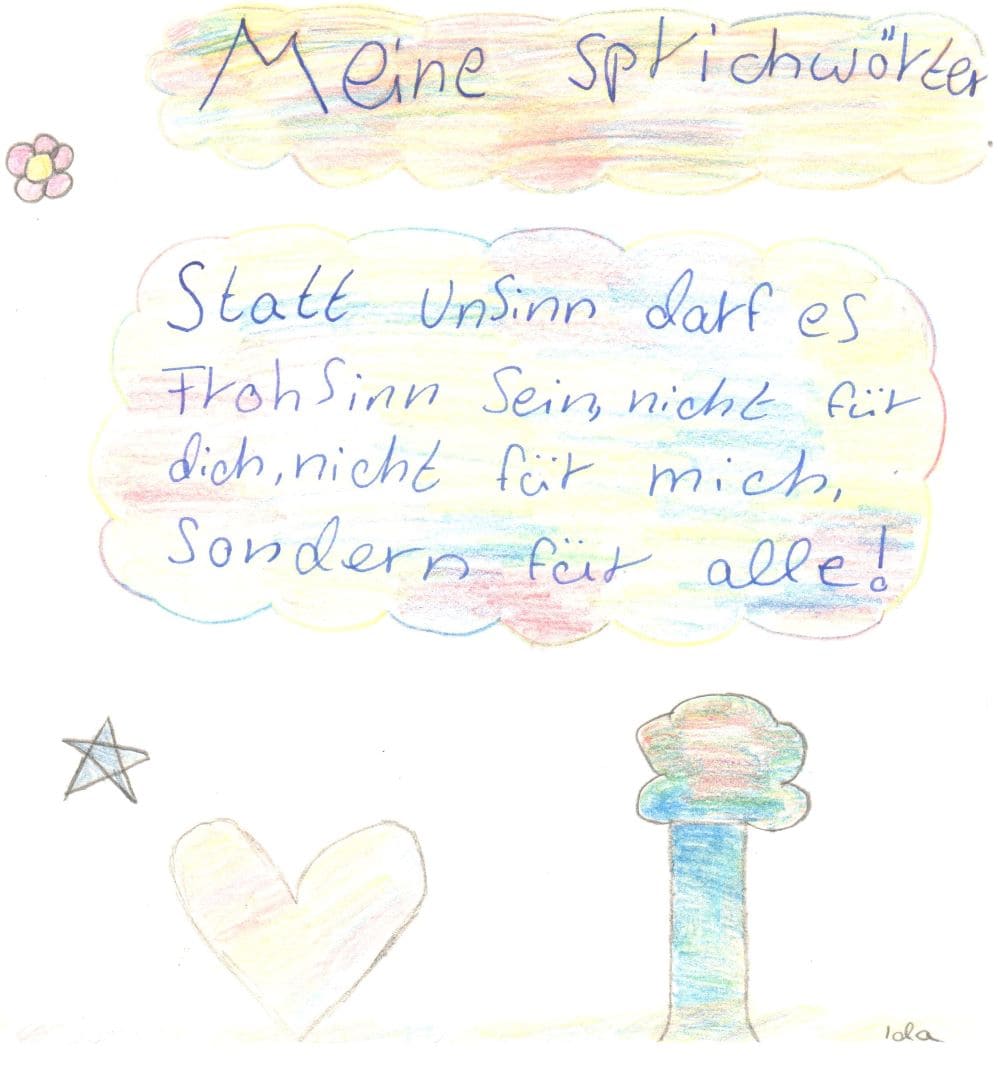 Meine Sprichwörter
Statt Unsinn darf es
Frohsinn Sein, nicht für
dich, nicht für mich,
Sondern für alle!
Ida